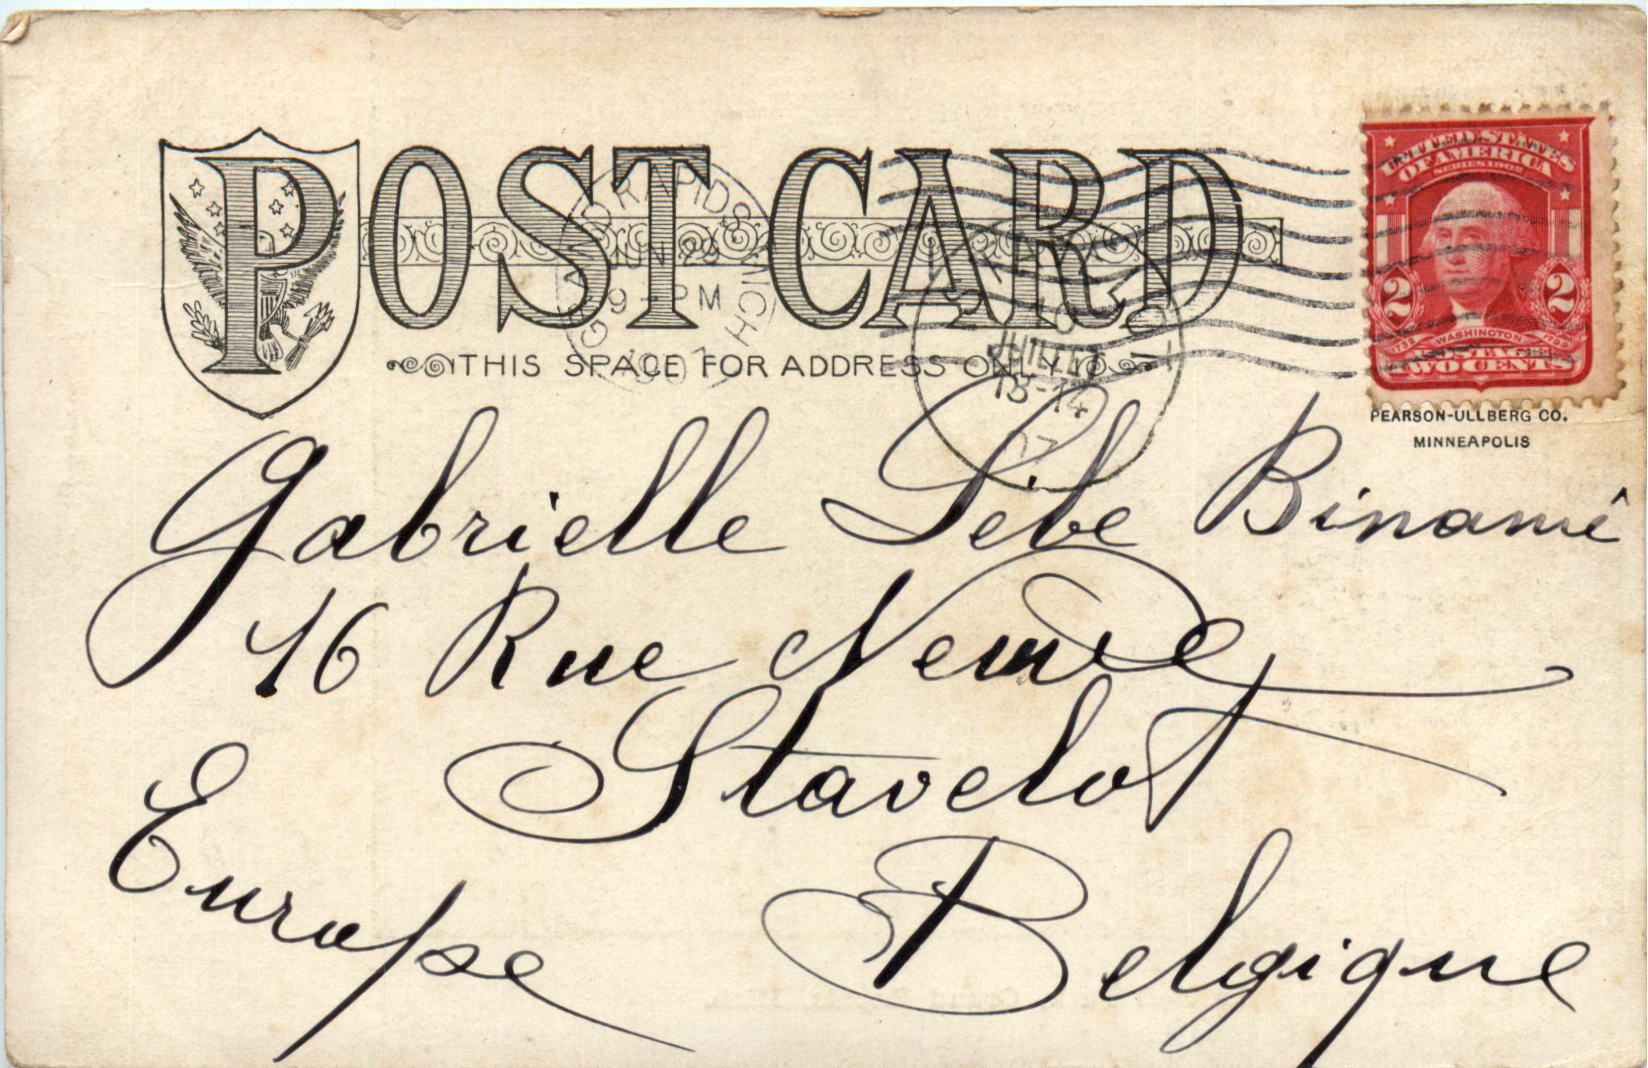 POST CARD
GRAND RAPIDS MICH.
JUN 29
9 - PM
1907
THIS SPACE FOR ADDRESS ONLY
13-14
07
UNITED STATES
OF AMERICA
SERIES 1902
2 2
1732 WASHINGTON 1799
TWO CENTS
PEARSON-ULLBERG CO.
MINNEAPOLIS
Gabrielle Binamé
16 Rue Neuve
Stavelot
Europe Belgique